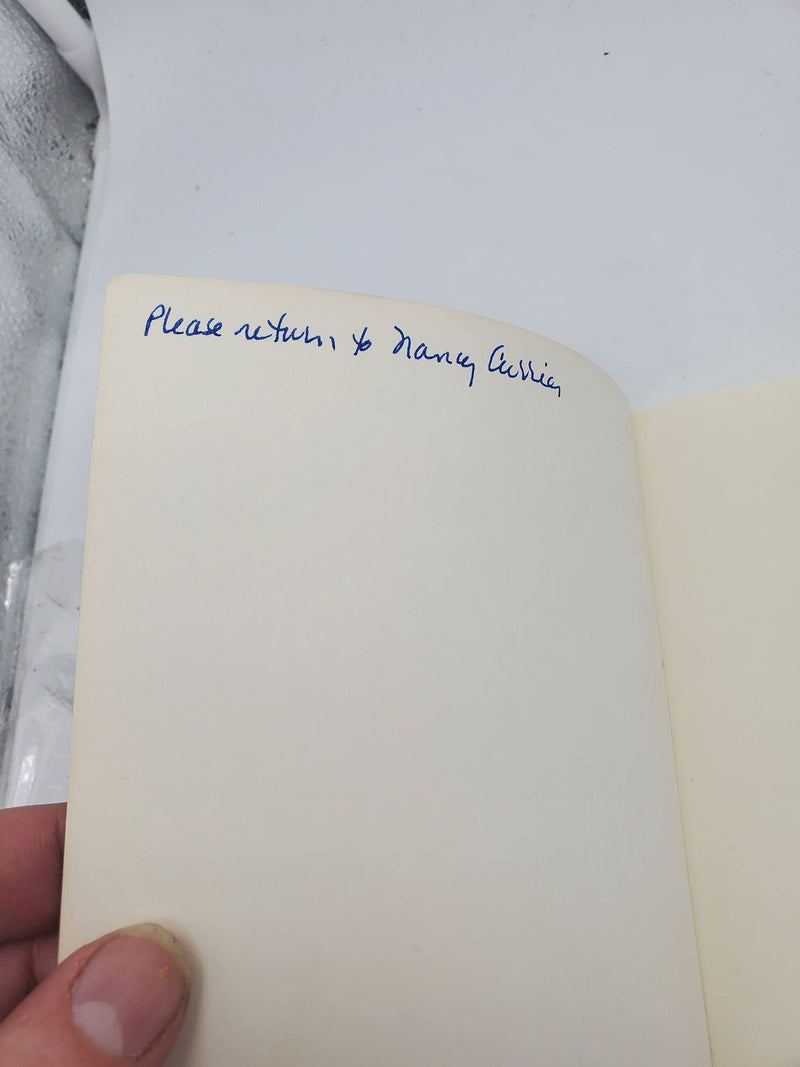 Please return to Nancy